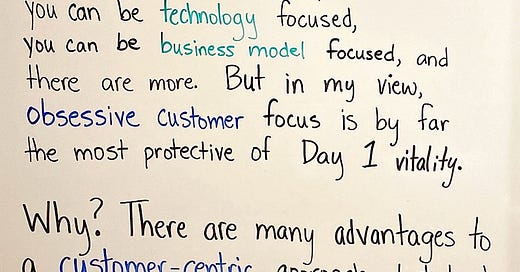 you can be technology focused,
you can be business model focused, and
there are more. But in my view,
obsessive customer focus is by far
the most protective of Day 1 vitality.
Why? There are many advantages to
a customer-centric